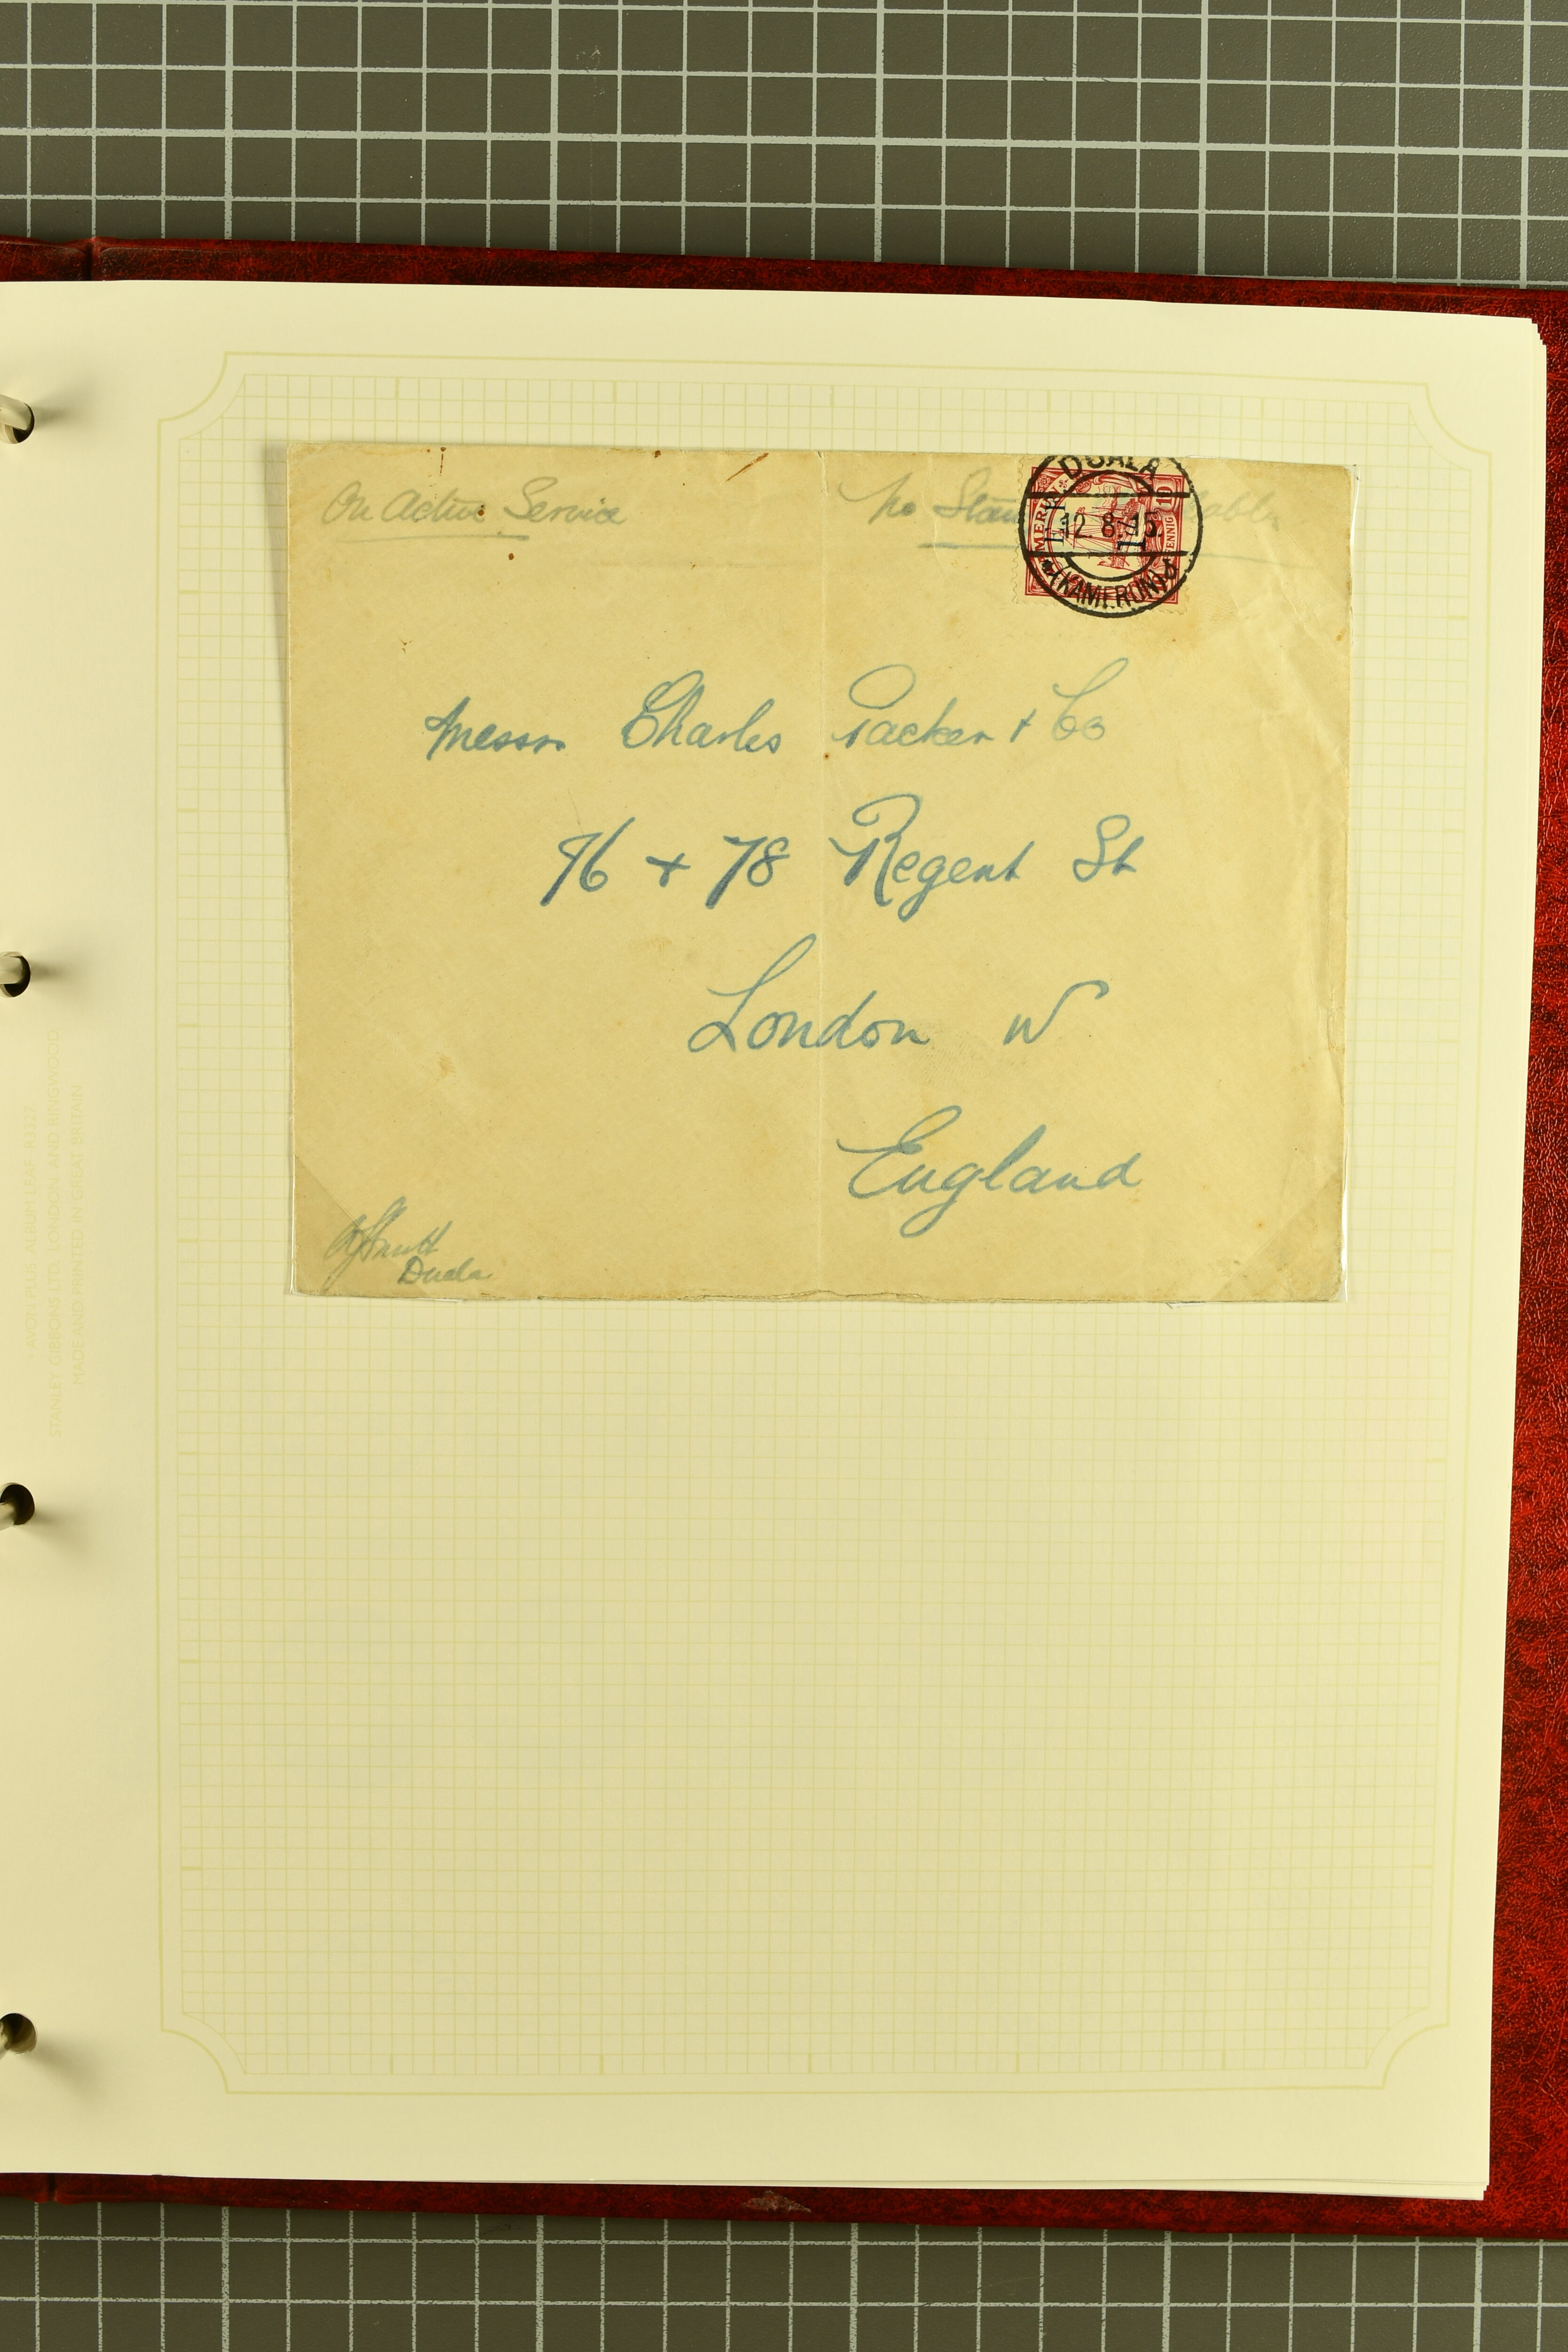 On Active Service
No Stam
DUALA
12 8.15
(KAMERUN)
10
PFENNIG
Messrs Charles Packer + Co
76 + 78 Regent St
London W
England
Duala
AVON PLUS ALBUM LEAF R3327
STANLEY GIBBONS LTD. LONDON AND RINGWOOD
MADE AND PRINTED IN GREAT BRITAIN